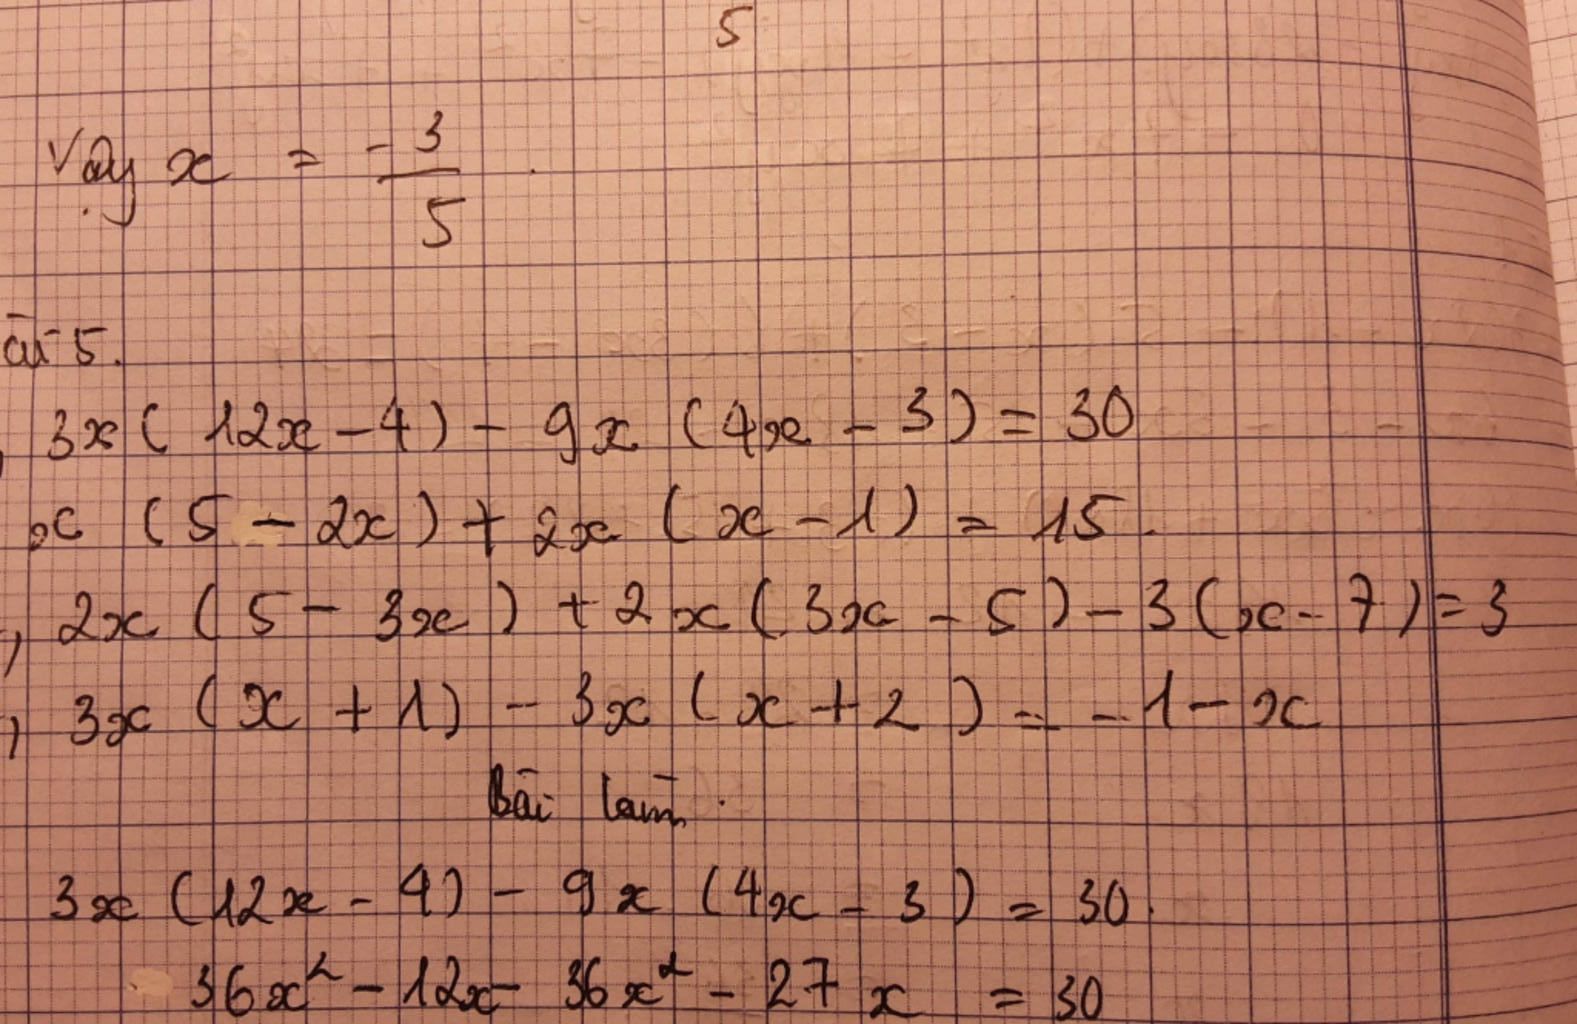 5
Vậy x = -3/5.
ài 5.
, 3x ( 12x - 4 ) - 9x ( 4x - 3 ) = 30
x ( 5 - 2x ) + 2x ( x - 1 ) = 15.
, 2x ( 5 - 3x ) + 2x ( 3x - 5 ) - 3 ( x - 7 ) = 3
, 3x ( x + 1 ) - 3x ( x + 2 ) = - 1 - x
Bài làm.
3x ( 12x - 4 ) - 9x ( 4x - 3 ) = 30.
36x² - 12x - 36x² - 27x = 30